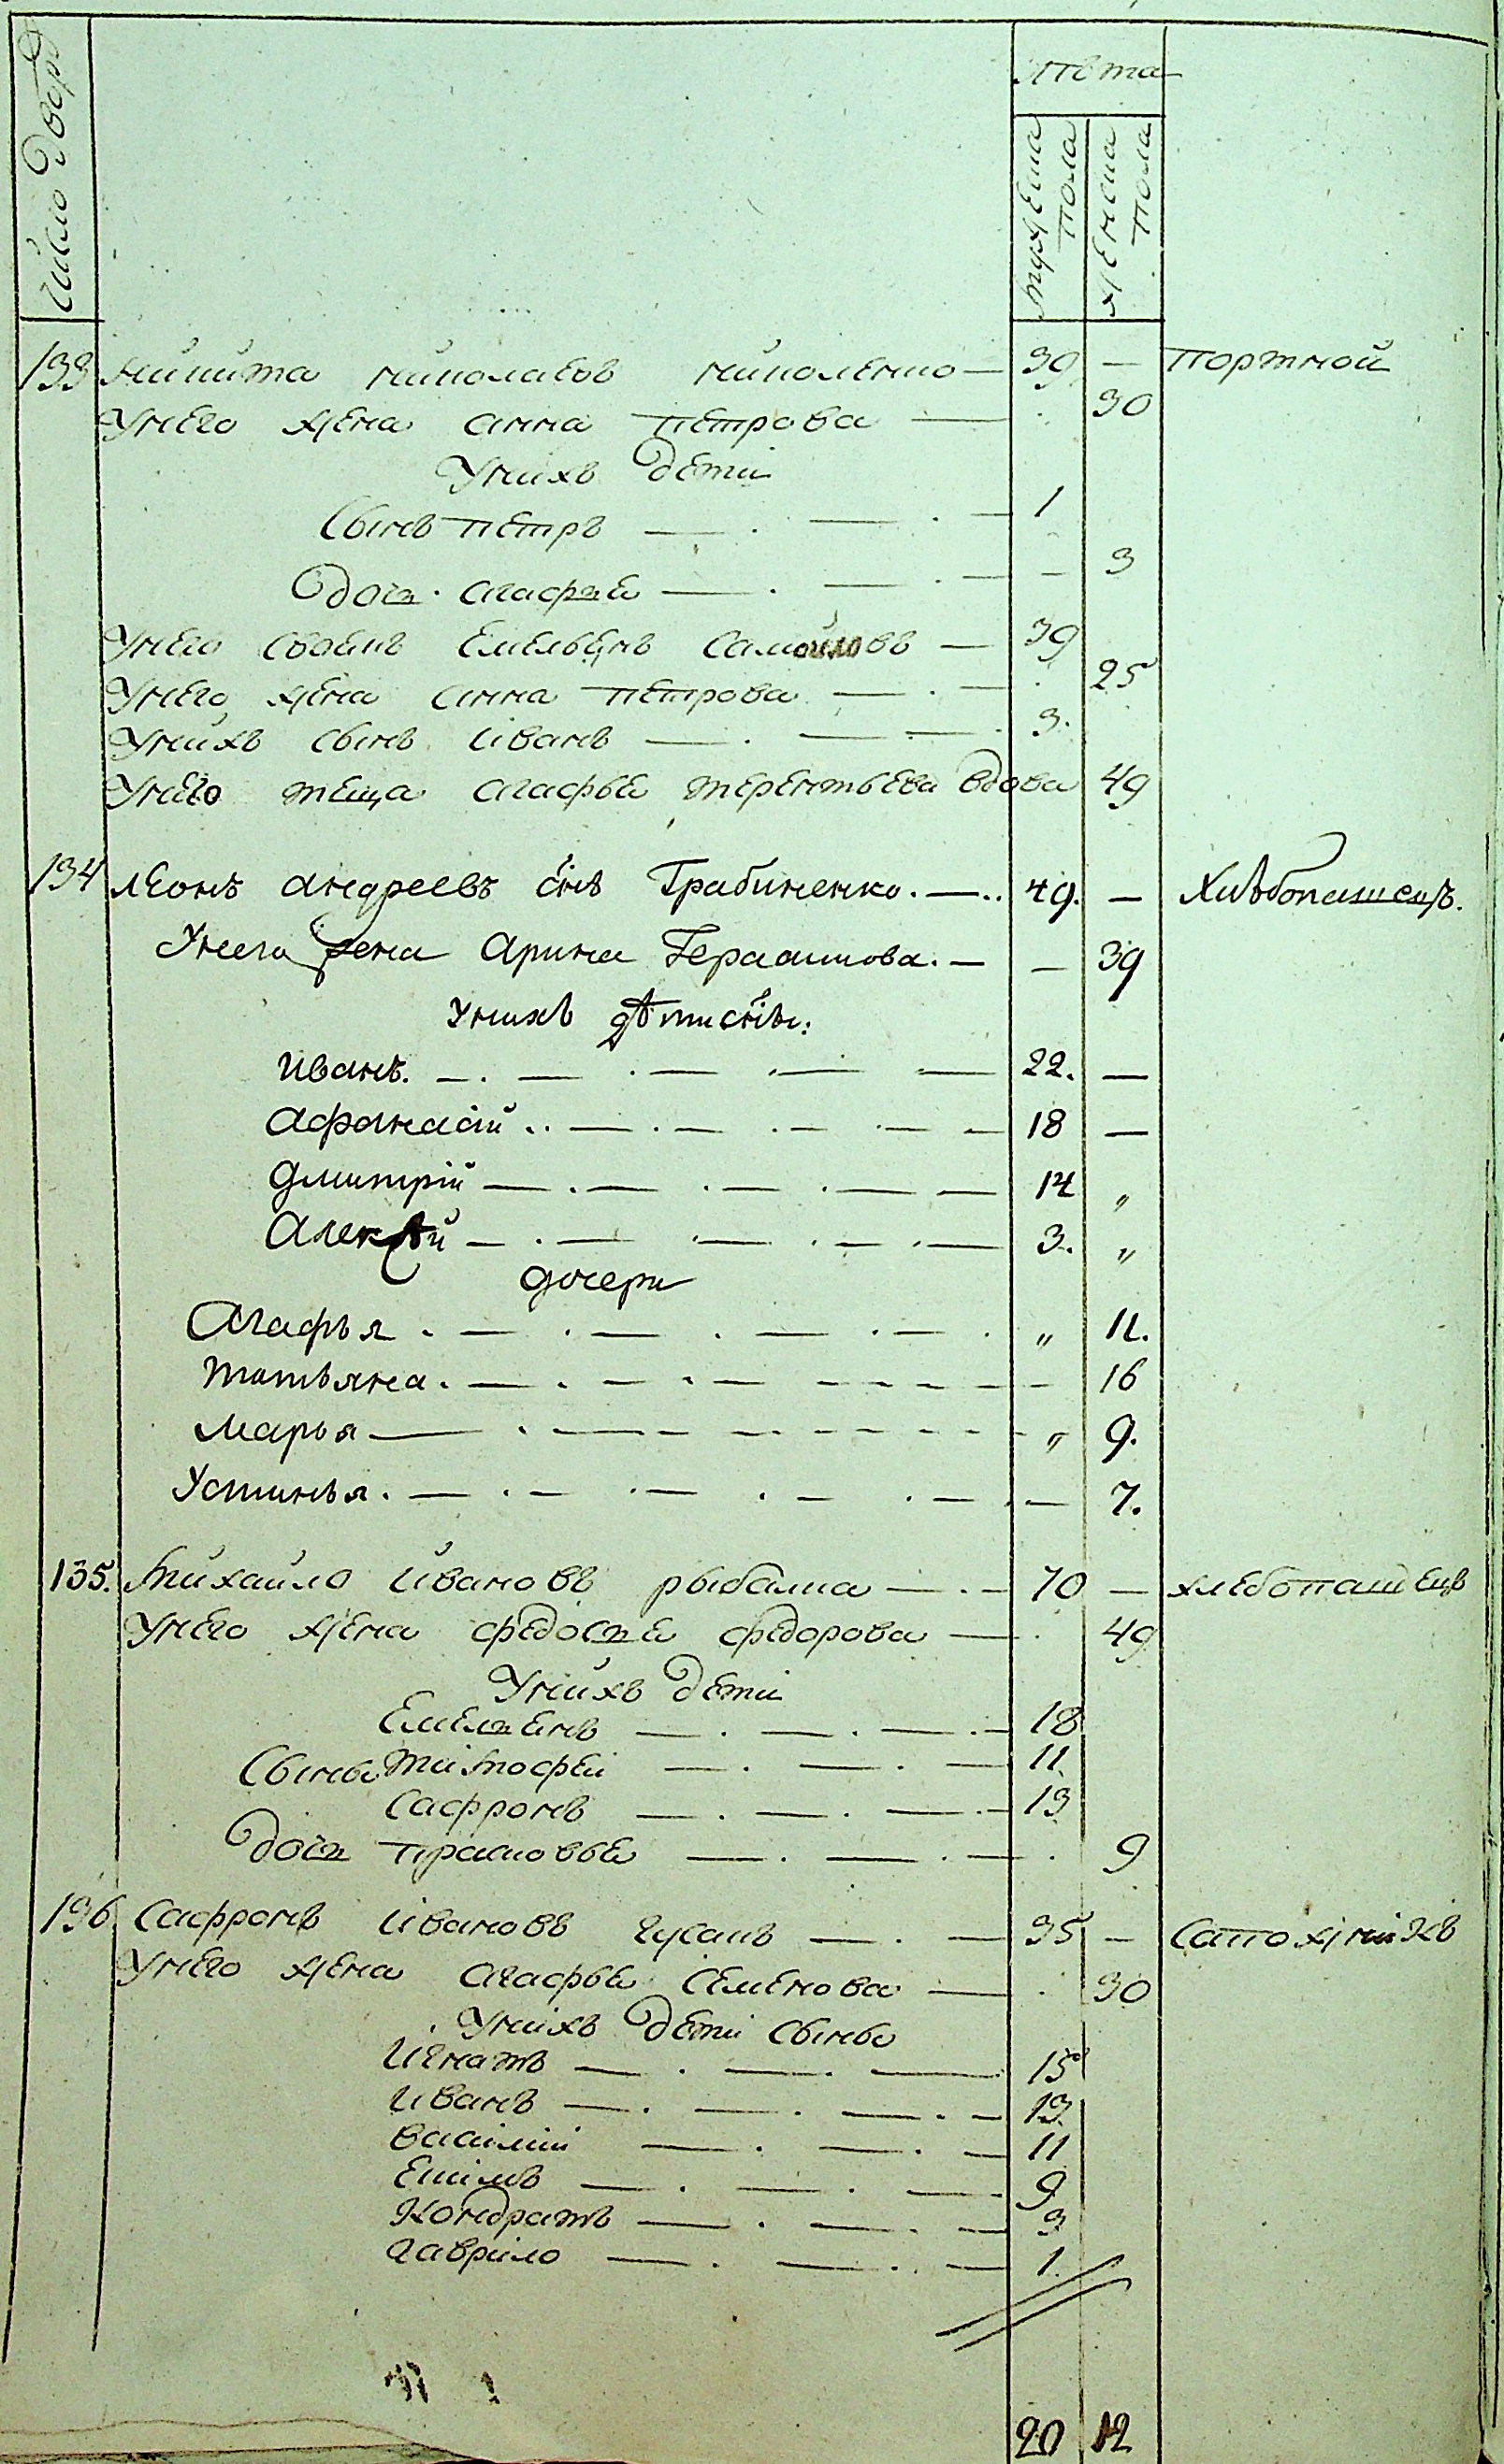 Число двора
Лѣта
мужеска пола
женска пола
133 никита николаевъ николенко — 39 — портной
Унего жена анна петрова — . 30
Унихъ дети
Сынъ петръ — . — . — 1
дочь . агафья — . — . — — 3
Унего своякъ Емельянъ Самойловъ — 39
Унего жена анна петрова — . — . 25
Унихъ сынъ иванъ — . — . 3.
Унего теща агафья терентьева вдова 49
134 Леонъ андреевъ снъ Грабиненко . — .. 49. — Хлѣбопашецъ.
Унего жена Арина Герасимова. — — 39
Унихъ дѣти снѣ:
Иванъ. — . — . — . — — 22. —
Афонасій .. — . — . — . — — 18 —
Дмитрій — . — . — . — — 14 „
Алексѣй — . — . — . — . — 3. „
дочери
Агафья . — . — . — . — . „ 11.
Татьяна. — . — . — — — — — 16
Марья — . — — — — — — „ 9.
Устинья. — . — . — . — . — . — 7.
135. Михайло ивановъ рыбалка — . — 70 — хлебопашецъ
Унего жена федосья федорова — . 49
Унихъ дети
Емельянъ — . — . — . — 18
Сыны тимофей — . — . — 11.
Сафронъ — . — . — . — 13
дочь прасковья — . — . — . 9
136 Сафронъ ивановъ гусакъ — . — 35 — Сапожникъ
Унего жена агафья Семенова — . 30
Унихъ дети сыны
Игнатъ — . — . — 15
Иванъ — . — . — . — 13.
василий — . — . — 11
Екимъ — . — . — . 9
Кондратъ — . — . — 3
гаврило — . — . . — 1.
20 12